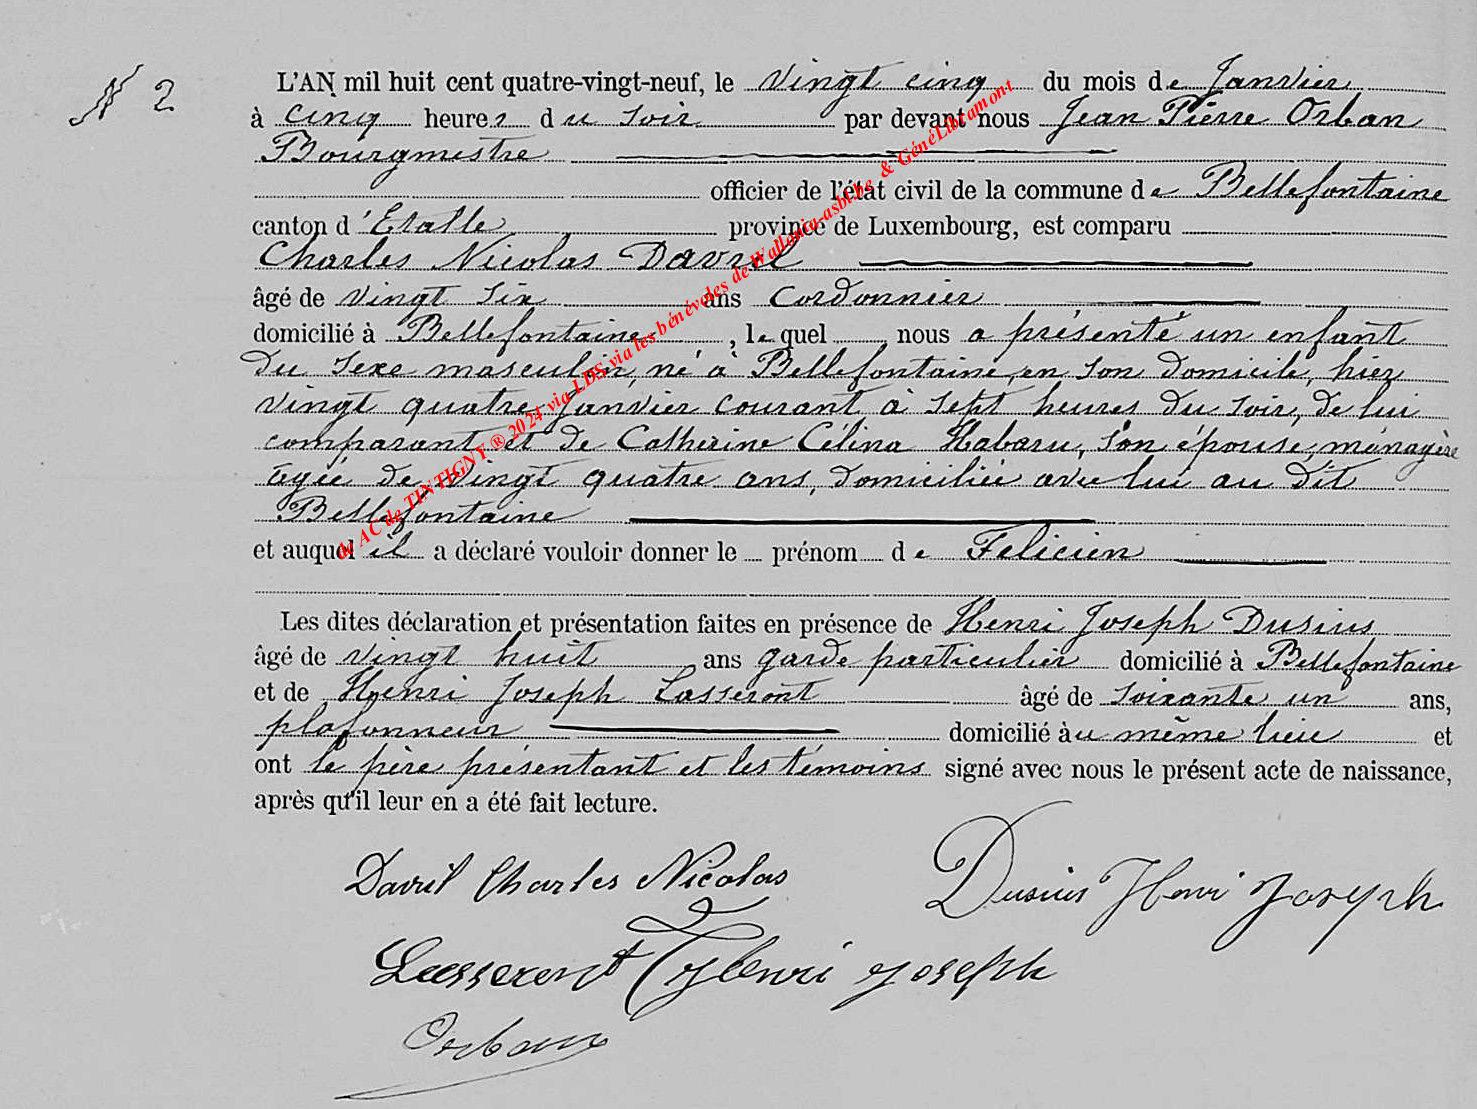 N 2
L'AN mil huit cent quatre-vingt-neuf, le vingt cinq du mois de Janvier
à cinq heures du soir par devant nous Jean Pierre Orban
Bourgmestre
officier de l'état civil de la commune de Bellefontaine
canton d'Etalle province de Luxembourg, est comparu
Charles Nicolas Davril
âgé de vingt six ans Cordonnier
domicilié à Bellefontaine, lequel nous a présenté un enfant
du sexe masculin, né à Bellefontaine, en son domicile, hier
vingt quatre Janvier courant à sept heures du soir, de lui
comparant et de Catherine Célina Habaru, son épouse, ménagère
agée de vingt quatre ans, domiciliée avec lui au dit
Bellefontaine
et auquel il a déclaré vouloir donner le prénom de Felicien
Les dites déclaration et présentation faites en présence de Henri Joseph Dusius
âgé de vingt huit ans garde particulier domicilié à Bellefontaine
et de Henri Joseph Lasseront âgé de soixante un ans,
plafonneur domicilié àu même lieu et
ont le père présentant et les témoins signé avec nous le présent acte de naissance,
après qu'il leur en a été fait lecture.
Davril Charles Nicolas Dusius Henri Joseph
Lasseront Henri Joseph
Orban
de AC de TINTIGNY ® 2024 via LDS via les bénévoles de Wallonia-asbl.be & GénéLibramont